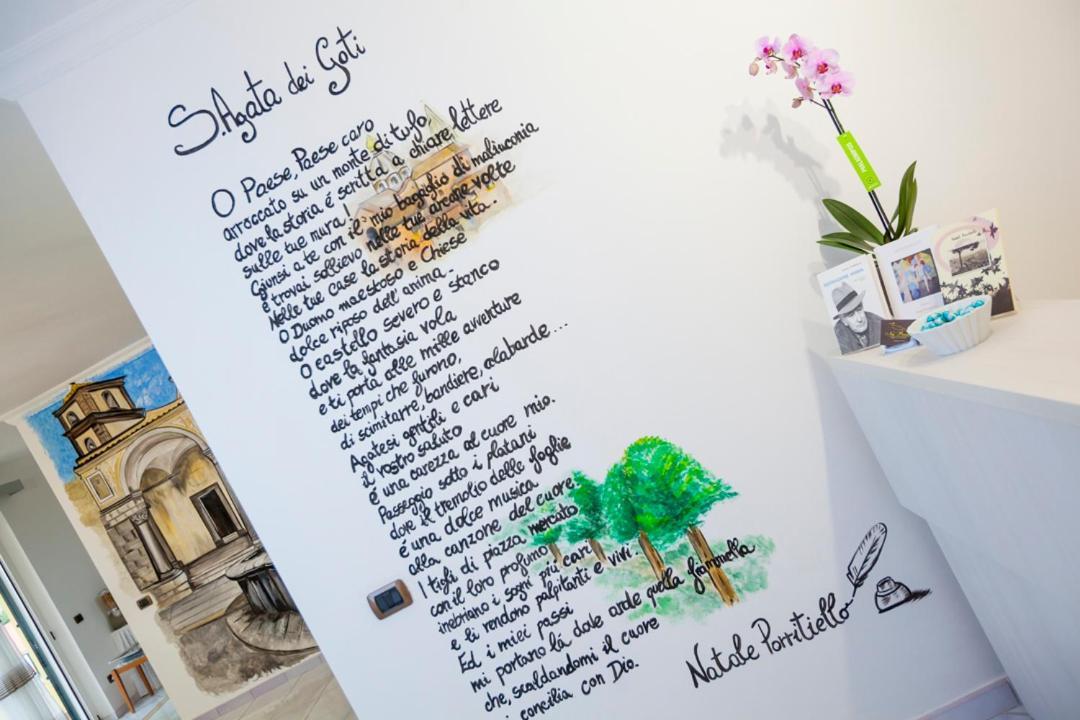 S. Agata dei Goti
O Paese, Paese caro
arroccato su un monte di tufo,
dove la storia é scritta a chiare lettere
sulle tue mura!
Giunsi a te con il mio bagaglio di malinconia
e trovai sollievo nelle tue arcane volte
Nelle tue case la storia della vita.
O Duomo maestoso e Chiese
dolce riposo dell'anima
O castello severo e stanco
dove la fantasia vola
e ti porta alle mille avventure
dei tempi che furono,
di scimitarre, bandiere, alabarde...
Agatesi gentili e cari
il vostro saluto
é una carezza al cuore mio.
Passeggio sotto i platani
dove il tremolio delle foglie
é una dolce musica
alla canzone del cuore
I tigli di piazza mercato
con il loro profumo
inebriano i sogni più cari
e li rendono palpitanti e vivi.
Ed i miei passi
mi portano là dove arde quella fiammella
che, scaldandomi il cuore
concilia con Dio.
Natale Porritiello